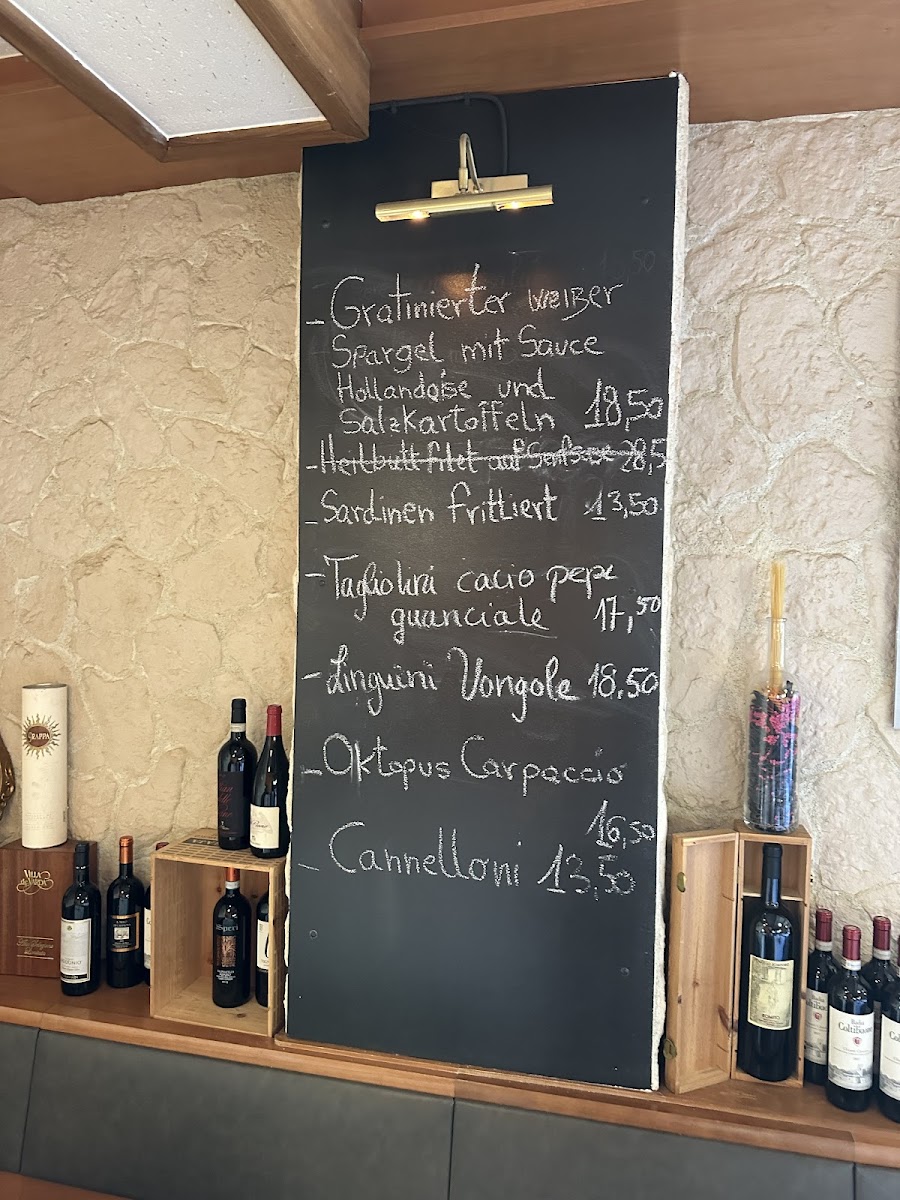 - Gratinierter weißer
Spargel mit Sauce
Hollandaise und
Salzkartoffeln 18,50
- Heilbuttfilet auf 28,5
- Sardinen frittiert 13,50
- Tagliolini cacio pepe
guanciale 17,50
- Linguini Vongole 18,50
- Oktopus Carpaccio
16,50
- Cannelloni 13,50
GRAPPA
VILLA
de VARDA
Coltibuono